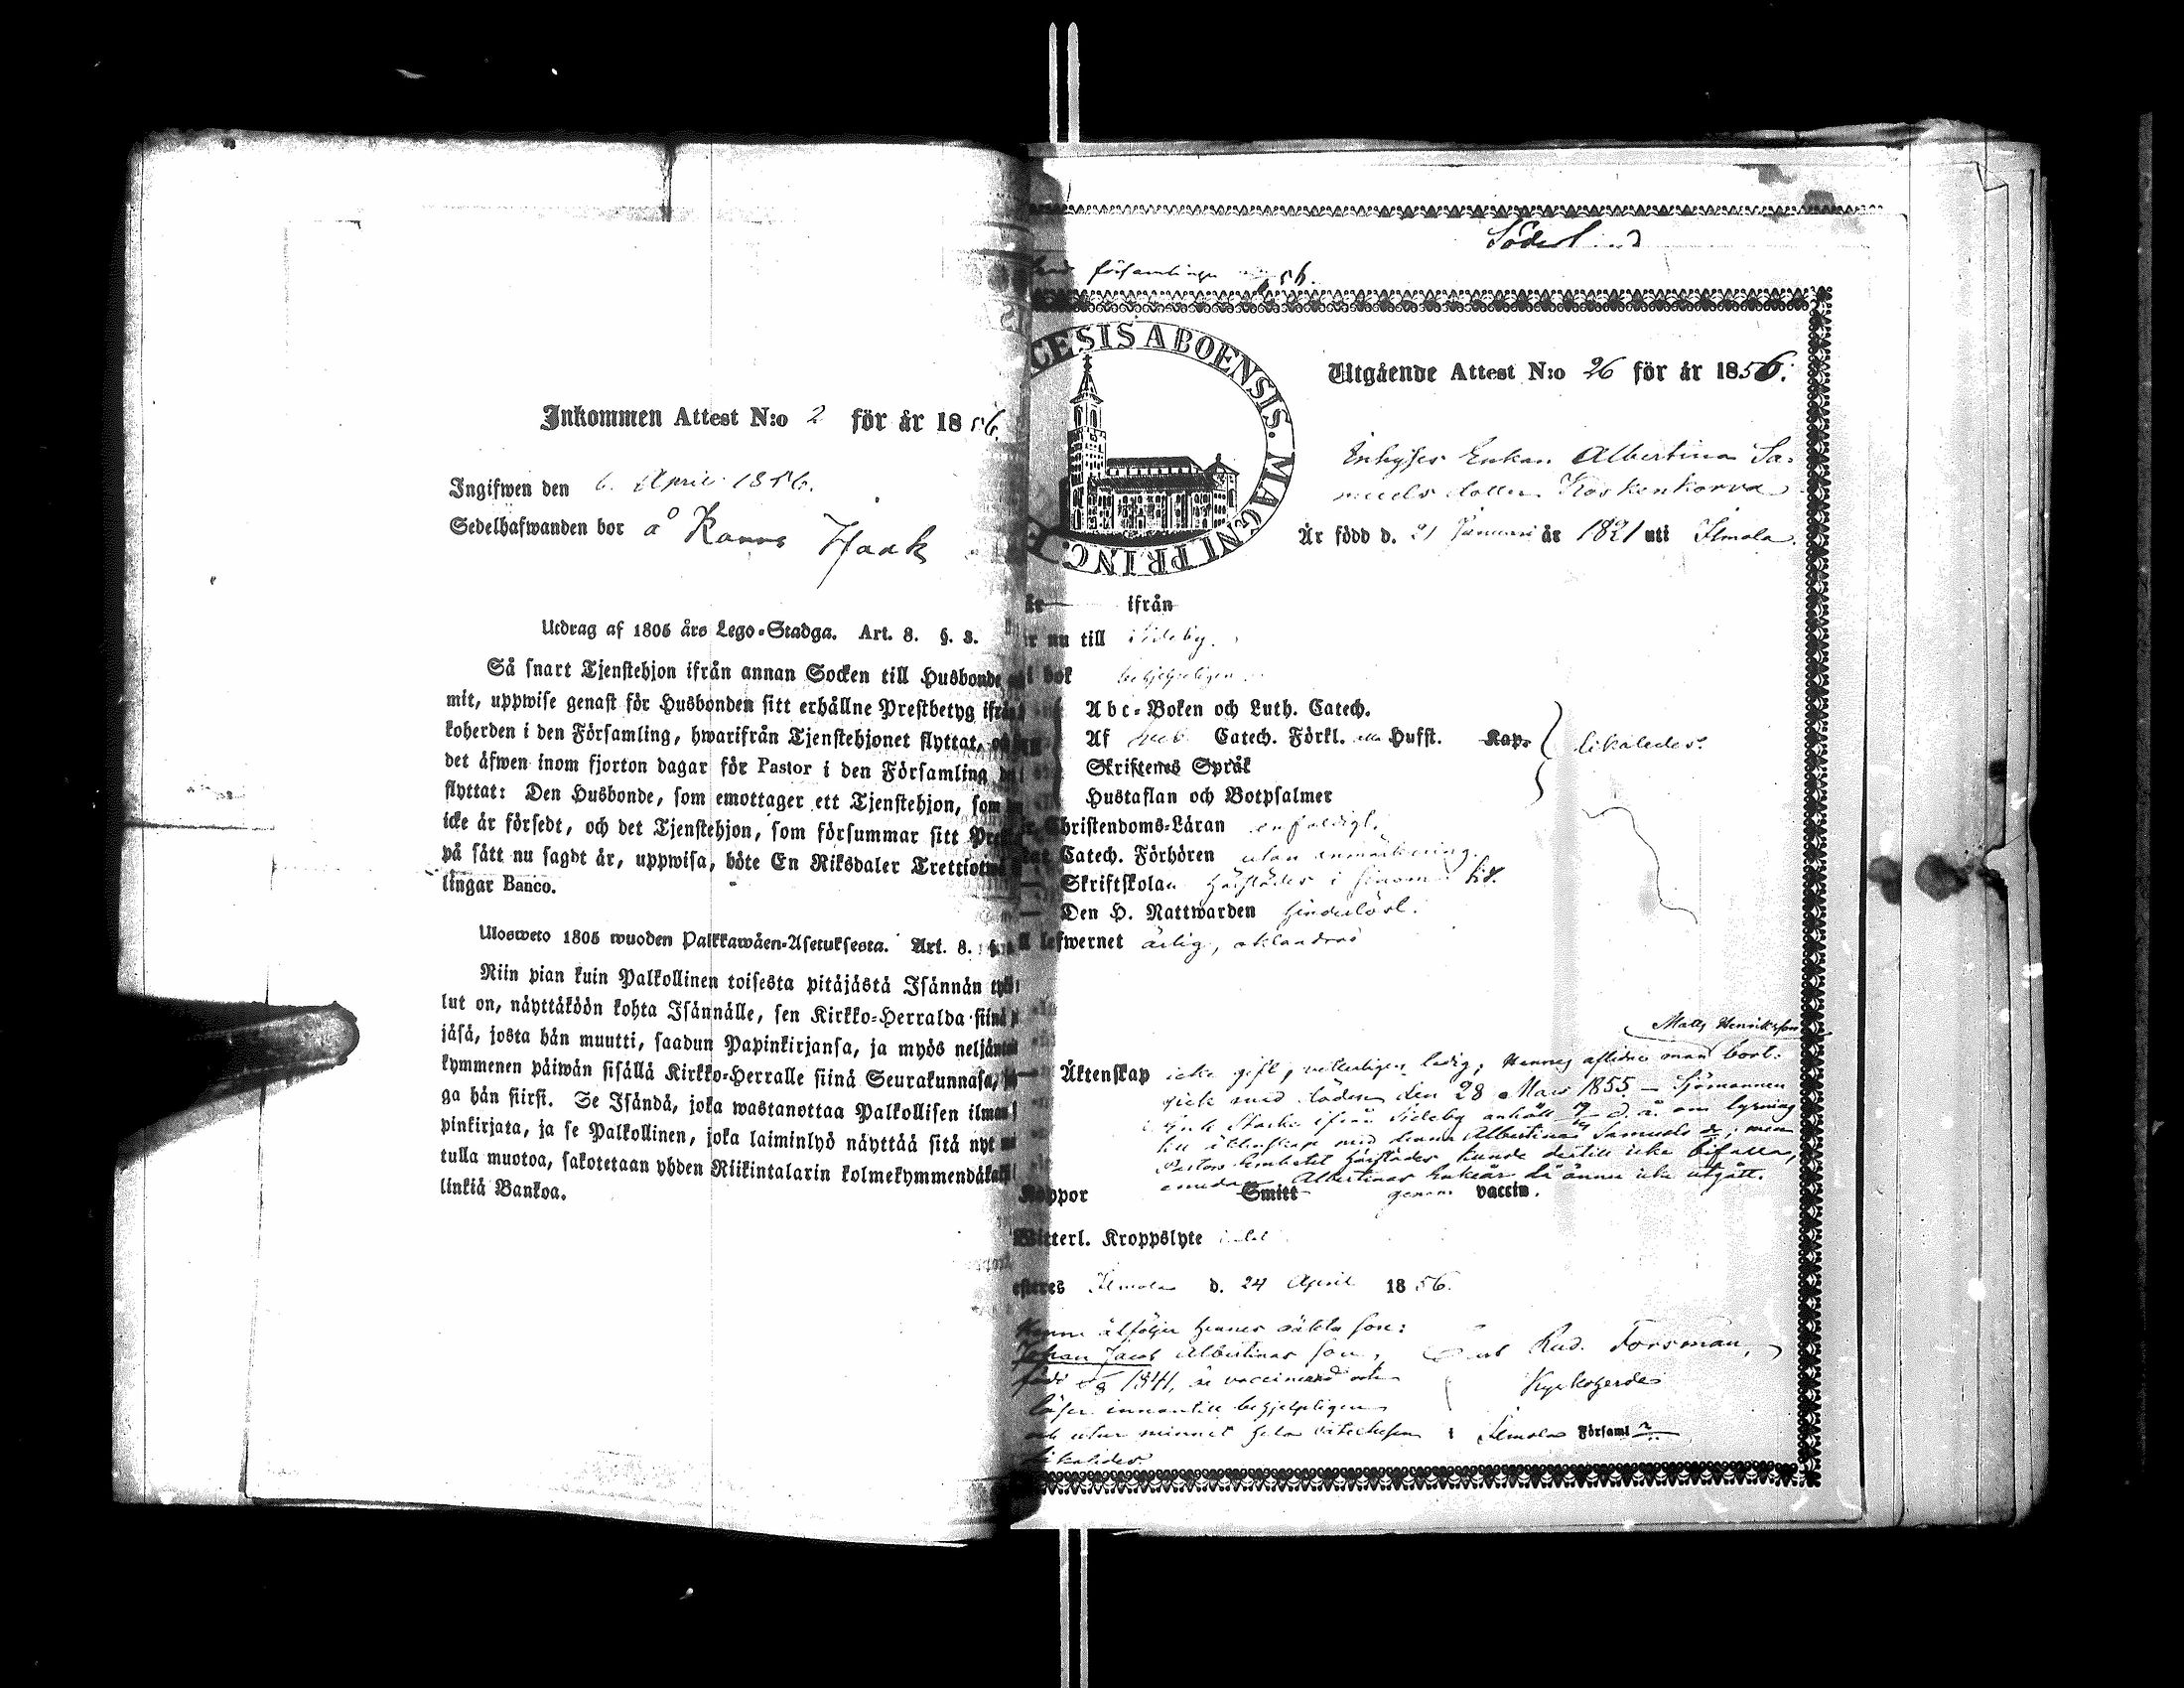 Inkommen Attest N:o 2 för år 1856.
Ingifwen den 6. April 1856.
Sedelhafwanden bor å
Utdrag af 1805 års Lego-Stadga. Art. 8. §. 3.
Så snart Tjenstehjon ifrån annan Socken till Husbonde
mit, uppwise genast för Husbonden sitt erhållne Prestbetyg ifrå
koherden i den Församling, hwarifrån Tjenstehjonet flyttat,
det äfwen inom fjorton dagar för Pastor i den Församling
flyttat: Den Husbonde, som emottager ett Tjenstehjon, som
icke är försedt, och det Tjenstehjon, som försummar sitt
på sätt nu sagdt är, uppwisa, böte En Riksdaler
lingar Banco.
Ulosweto 1805 wuoden Palkkawäen-Asetuksesta. Art. 8.
Niin pian kuin Palkollinen toisesta pitäjästä Isännän
lut on, näyttäköön kohta Isännälle, sen Kirkko-Herralda siinä
jäsä, josta hän muutti, saadun Papinkirjansa, ja myös
kymmenen päiwän sisällä Kirkko-Herralle siinä Seurakunnasa,
ga hän siirsi. Se Isändä, joka wastanottaa Palkollisen
pinkirjata, ja se Palkollinen, joka laiminlyö näyttää sitä nyt
tulla muotoa, sakotetaan yhden Riikintalarin
linkiä Bankoa.
församlinge 56.
CESIS ABOENSIS. MAGNI PRINC.
Utgående Attest N:o 26 för år 1856.
Inhyses Enkan Albertina Sa-
muelsdotter Koskenkorva
Är född d. 21 Januari år 1821 uti Ilmola.
är ifrån
nu till Sideby.
bok behjelpeligen
Abc-Boken och Luth. Catech.
Af Catech. Förkl. Husst. Kap. likaledes.
Skriftenes Språk
Hustaflan och Botpsalmer
Christendoms-Läran enfaldigt.
Catech. Förhören utan anmärkning.
Skriftskolan härstädes i sinom tid.
Den H. Nattwarden hinderlöst.
lefwernet ärlig, oklandrad
Matts Henriksson
Äktenskap icke gift, veterligen ledig; Hennes aflidne man bort-
gick med döden den 28 Mars 1855 — Sjömannen
ifrån Sideby anhöll d. å. om lysning
till äktenskap med denna Albertina Samuels dr; men
Pastors Embetet härstädes kunde dertill icke bifalla,
emedan Albertinas Enkeår då ännu icke utgått.
Koppor Smitt genom vaccin.
Witterl. Kroppslyte
Ilmola d. 24 April 1856.
Henne åtföljer hennes oäkta son:
Johan Jacob Albertinas son,
född 1841, är vaccinerad och
läser innantill behjelpligen
och utur minnet hela catechesen
likaledes.
Rud. Forsman,
Kyrkoherde
i Ilmola Församl